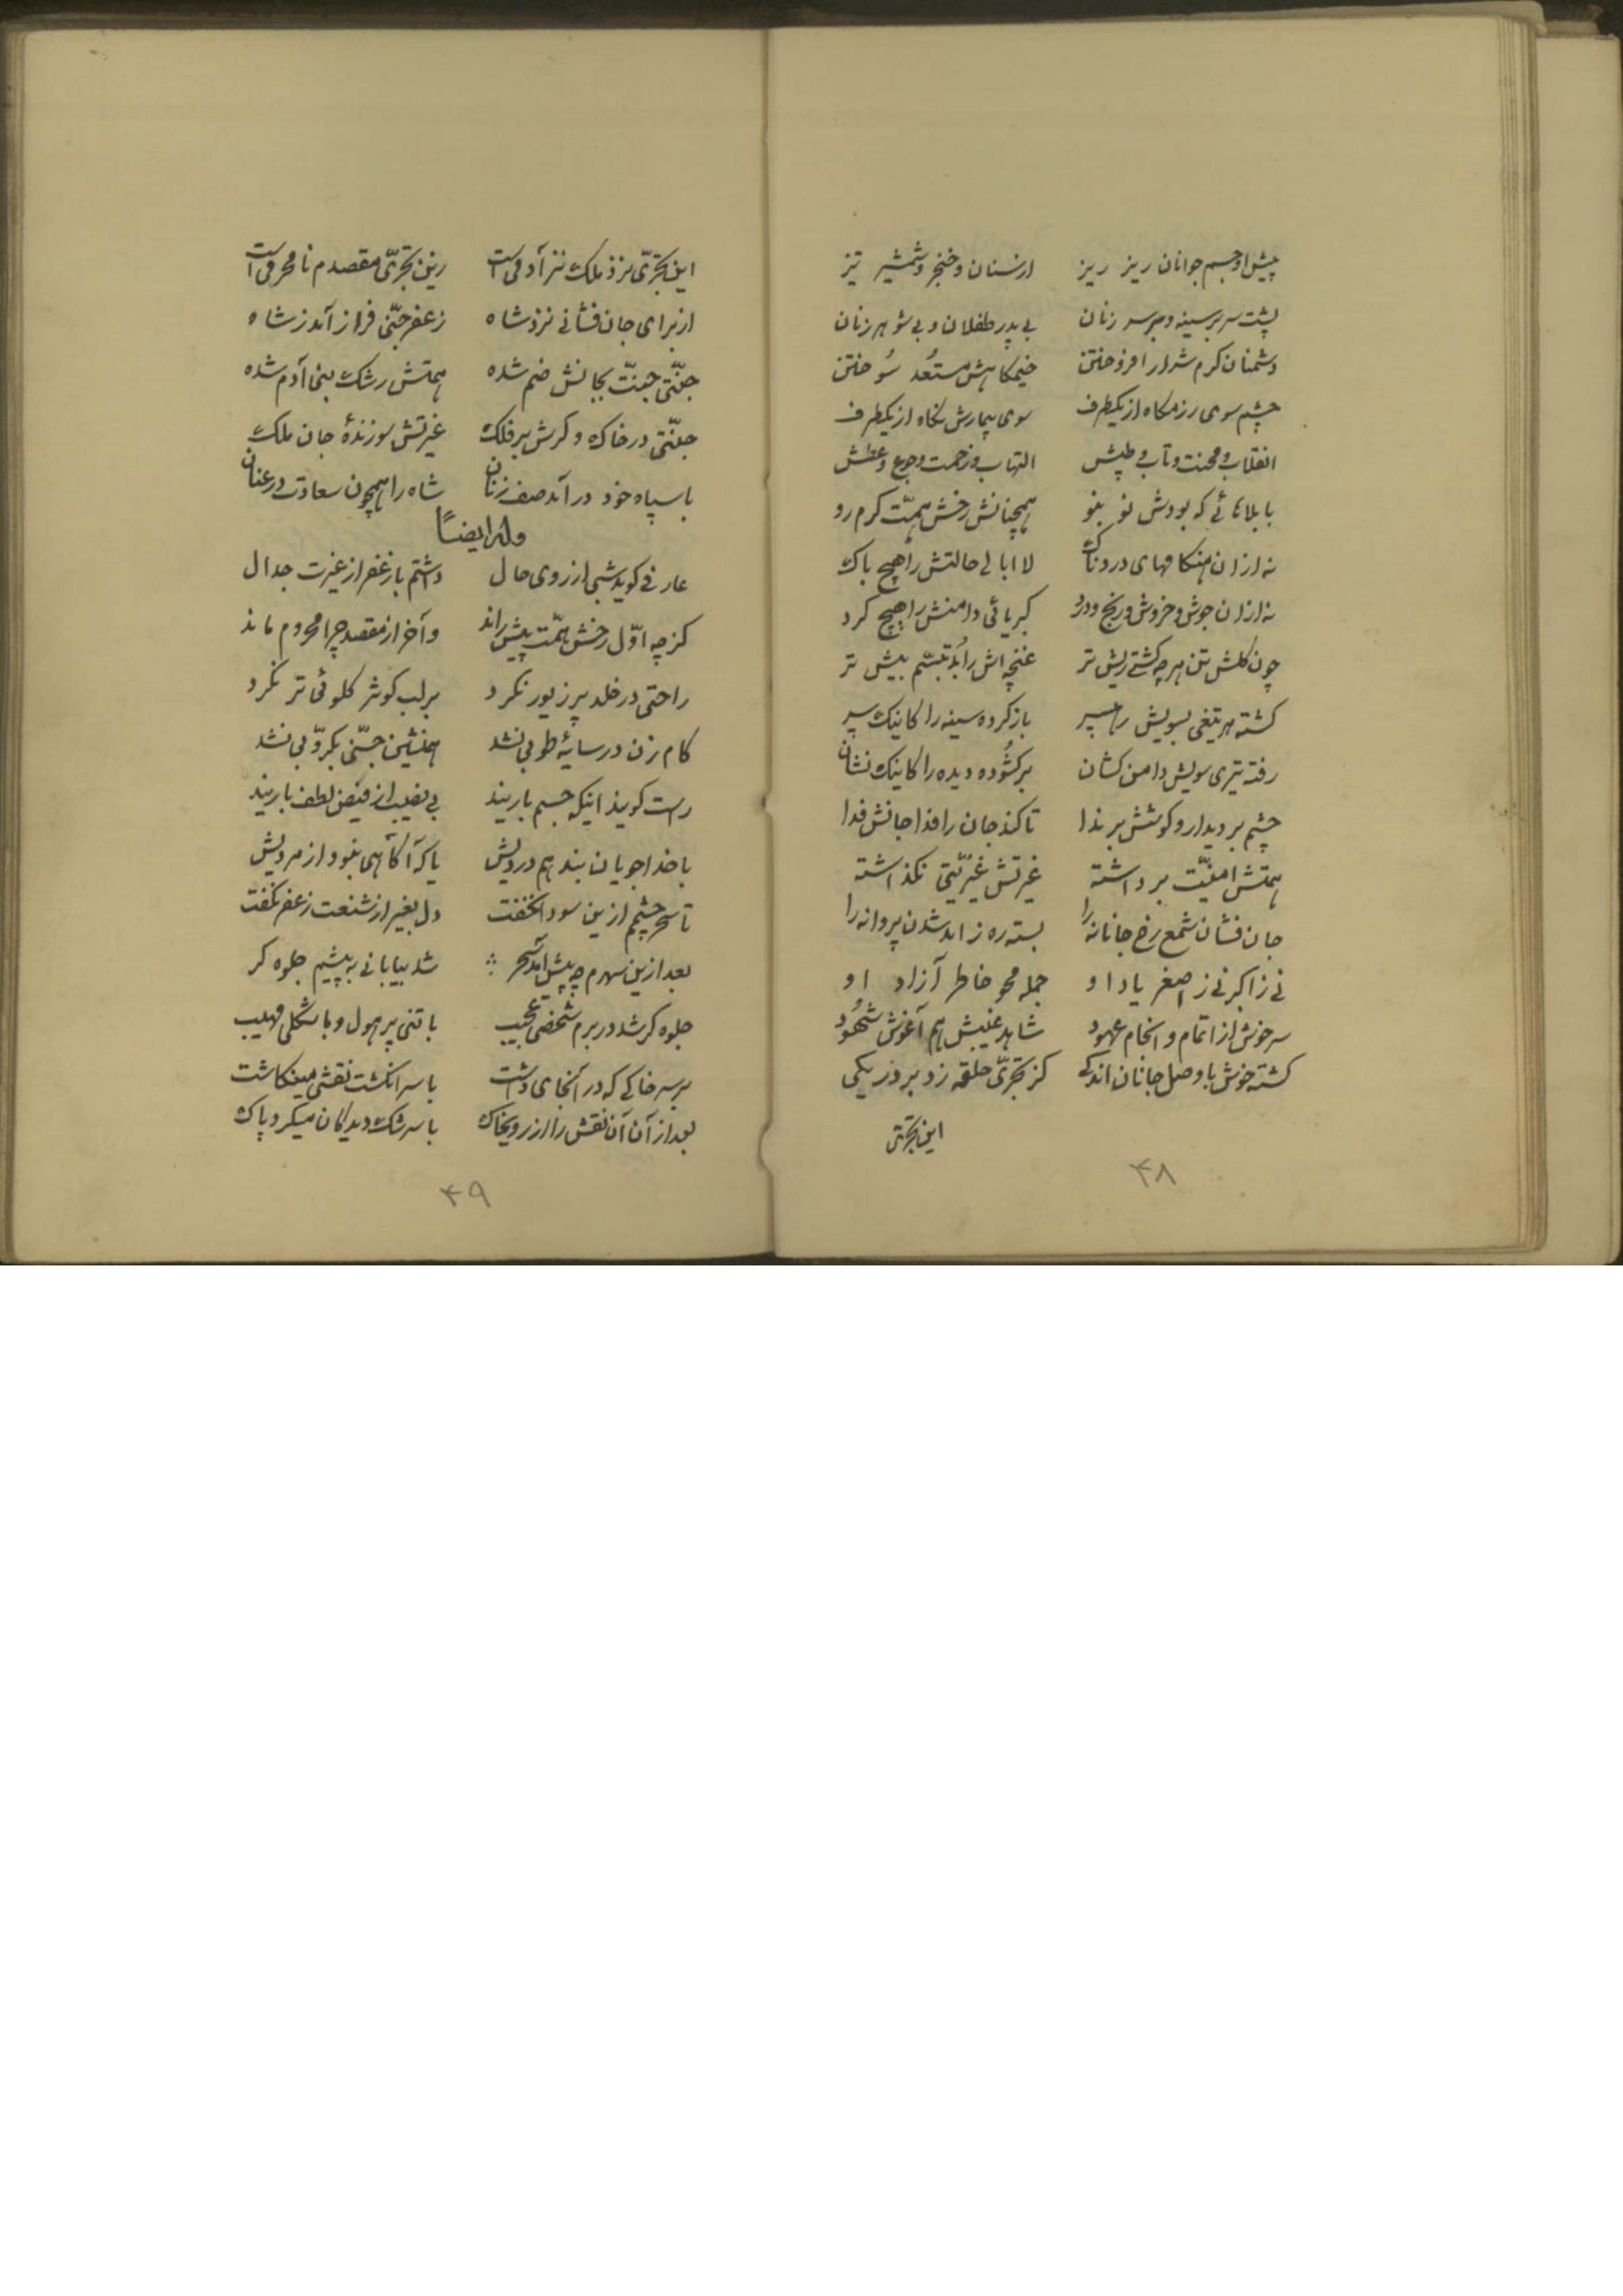 پیش او جسم جوانان ریز ریز ازسنان و خنجر و شمشیر تیز
پشت سر بر سینه و بر سر زنان بی پدر طفلان و بی شوهر زنان
دشمنان کرم شرار افروختن خیمکاهش مستعد سوختن
چشم سوی رزمکاه از یکطرف سوی بیمارش نکاه از یکطرف
انقلاب و محنت و تاب و طپش التهاب و زحمت و جوع و عطش
با بلاهائی که بودش نو بنو همچنانش رخش همّت کرم رو
نه ازان هنکامهای دردناک لاابالی حالتش را هیچ باک
نه ازان جوش و خروش و رنج و درد کبریائی دامنش را هیچ کرد
چون کلش تن هر چه کشتی ریش تر غنچه اش را بُد تبسّم بیش تر
کشته هر تیغی بسویش رهسپر بازکرده سینه را کاینک سپر
رفته تیری سویش دامن کشان برکشوده دیده را کاینک نشان
چشم بر دیدار و کوشش بر ندا تا کند جان را فدا جانش فدا
همتش امنیّت برداشته غیرتش غیریّتی نکذاشته
جان فشان شمع رخ جانانه را بسته ره ز امد شدن پروانه را
نی ز اکبر نی ز اصغر یاد او جمله محو خاطر آزاد او
سرخوش از اتمام و انجام عهود شاهد غیبش هم آغوش شهُود
کشته خوش با وصل جانان اندکی کز تجرّی حلقه زد بر در یکی
این تجرّی
۴۸
این تجرّی نزد ملک نز آدمی است زین تجرّی مقصدم نامحرمی است
از برای جان فشانی نزد شاه زعفر جنّی فراز آمد ز شاه
جنّتی جنّت بجانش ضم شده همتش رشک بنی آدم شده
جنّتی در خاک و کرش بر فلک غیرتش سوزندهٔ جان ملک
با سپاه خود در آمد صف زنان شاه را همچون سعادت در عنان
وله ایضاً
عارفی کوید شبی از روی حال داشتم با زعفر از غیرت جدال
کز چه اوّل رخش همّت پیش راند و آخر از مقصد چرا محروم ماند
راحتی در خلد پر زیور نکرد بر لب کوثر کلوئی تر نکرد
کام زن در سایهٔ طوبی نشد همنشین جنّی بکرّوبی نشد
راست کویند اینکه جسم نارینند بی نصیب از فیض لطف بارینند
با خداجویان بند هم درویش یا که آکاهی نبود از مردیش
تا سحر چشمم ازین سودا نخفت دل بغیر از شنعت زعفر نکفت
بعد ازین سهوم چه پیش آمد سحر شد بیابانی به پیشم جلوه کر
جلوه کر شد در برم شخصی عجیب با تنی پر هول و با شکلی مهیب
بر سر خاکی که در آنجای داشت با سر انکشت نقشی مینکاشت
بعد از آن آن نقش را از روی خاک با سرشک دیدکان میکرد پاک
۴۹